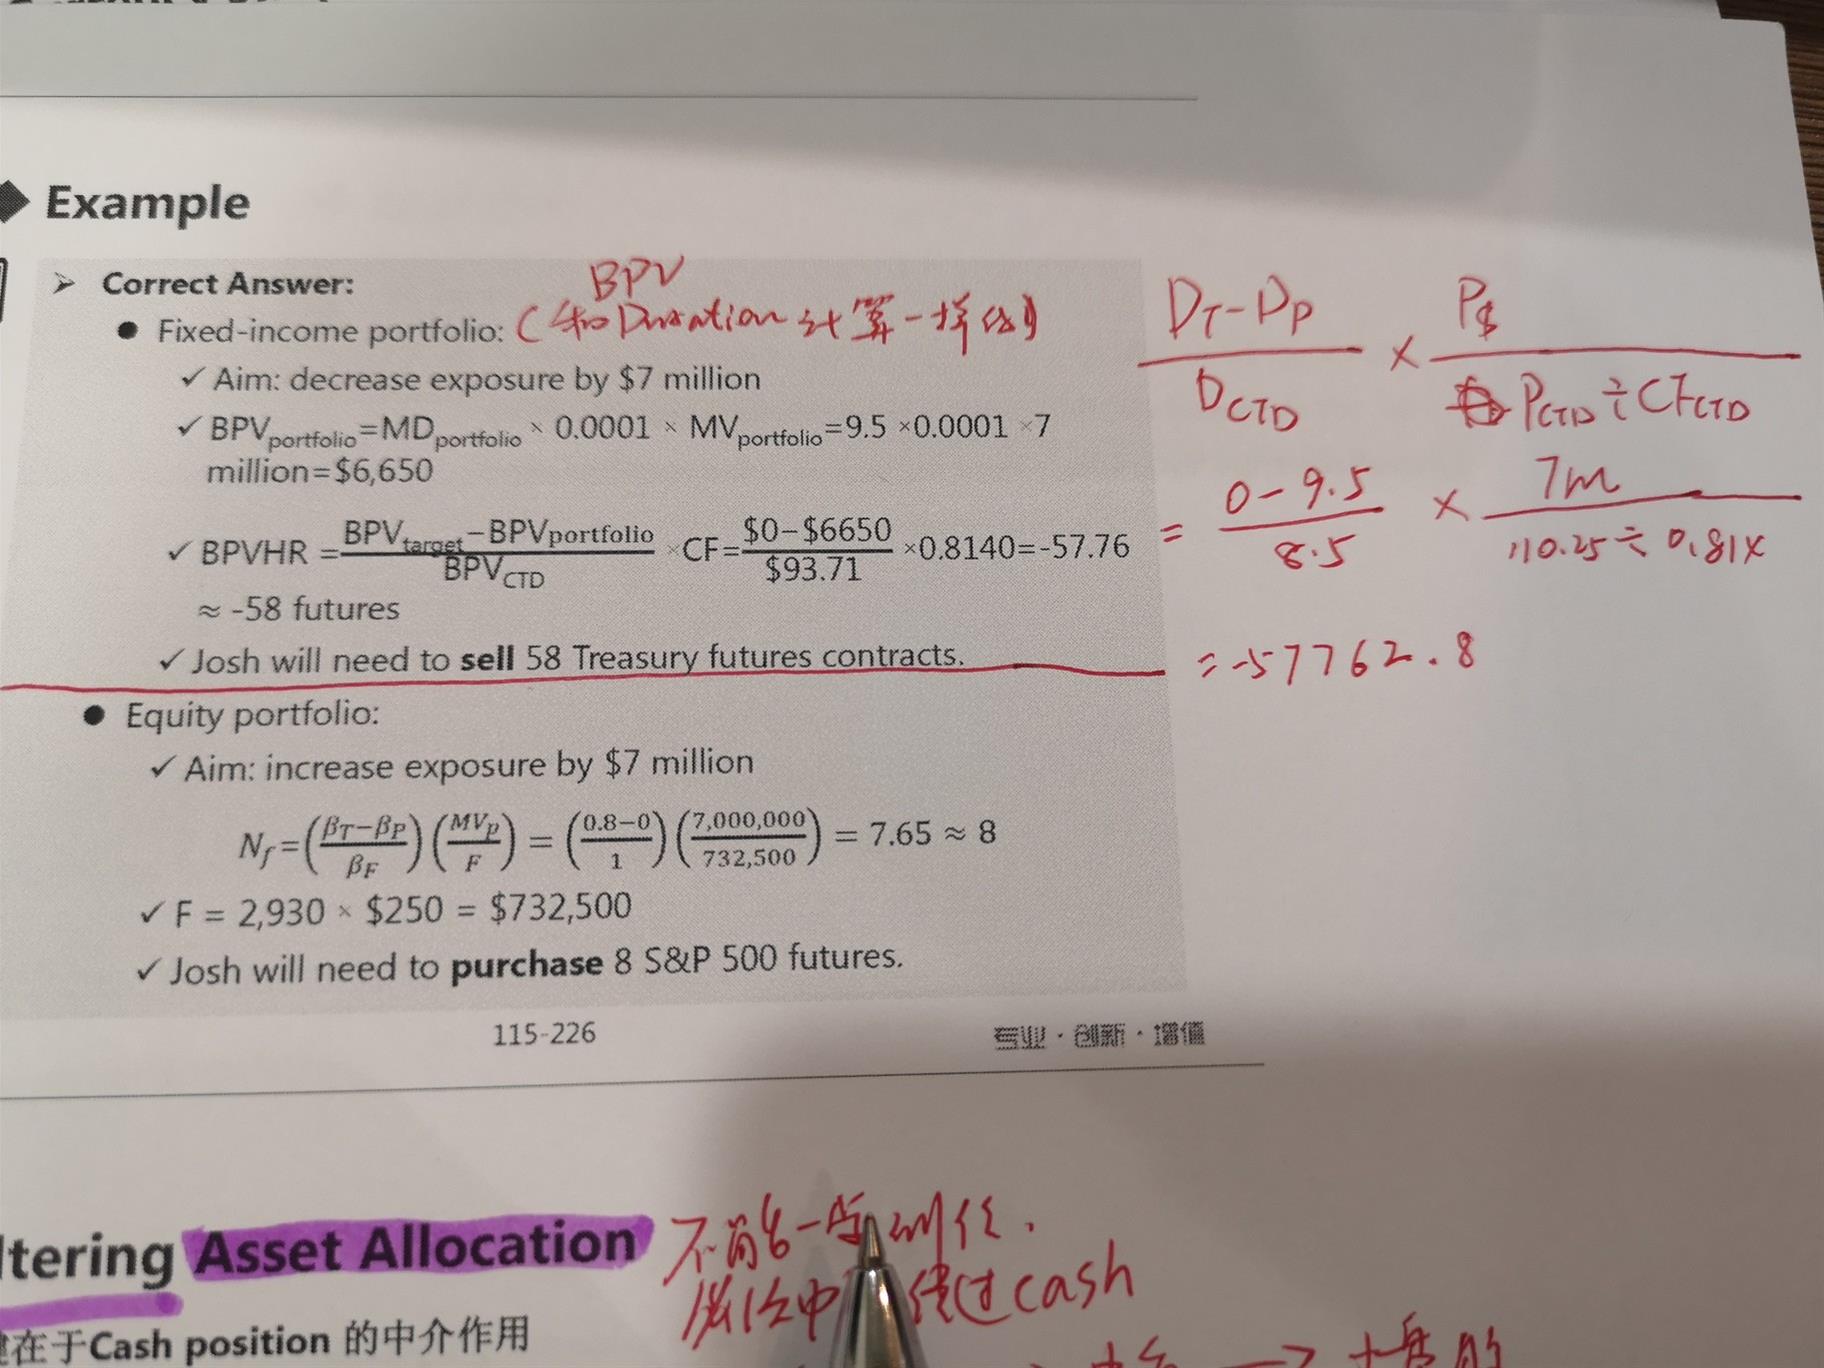 Example
Correct Answer:
BPV
Fixed-income portfolio: (和Duration计算一样的)
✓ Aim: decrease exposure by $7 million
✓ BPVportfolio=MDportfolio × 0.0001 × MVportfolio=9.5 ×0.0001 ×7
million=$6,650
✓ BPVHR =(BPVtarget−BPVportfolio)/BPVCTD ×CF=($0−$6650)/$93.71 ×0.8140=-57.76
≈ -58 futures
✓ Josh will need to sell 58 Treasury futures contracts.
(DT-DP)/DCTD × P$/(PCTD÷CFCTD)
= (0-9.5)/8.5 × 7m/(110.25÷0.814)
=-57762.8
Equity portfolio:
✓ Aim: increase exposure by $7 million
Nf=((βT−βP)/βF)(MVp/F) = ((0.8−0)/1)(7,000,000/732,500) = 7.65 ≈ 8
✓ F = 2,930 × $250 = $732,500
✓ Josh will need to purchase 8 S&P 500 futures.
115-226
专业·创新·增值
ltering Asset Allocation
cash
在于Cash position 的中介作用